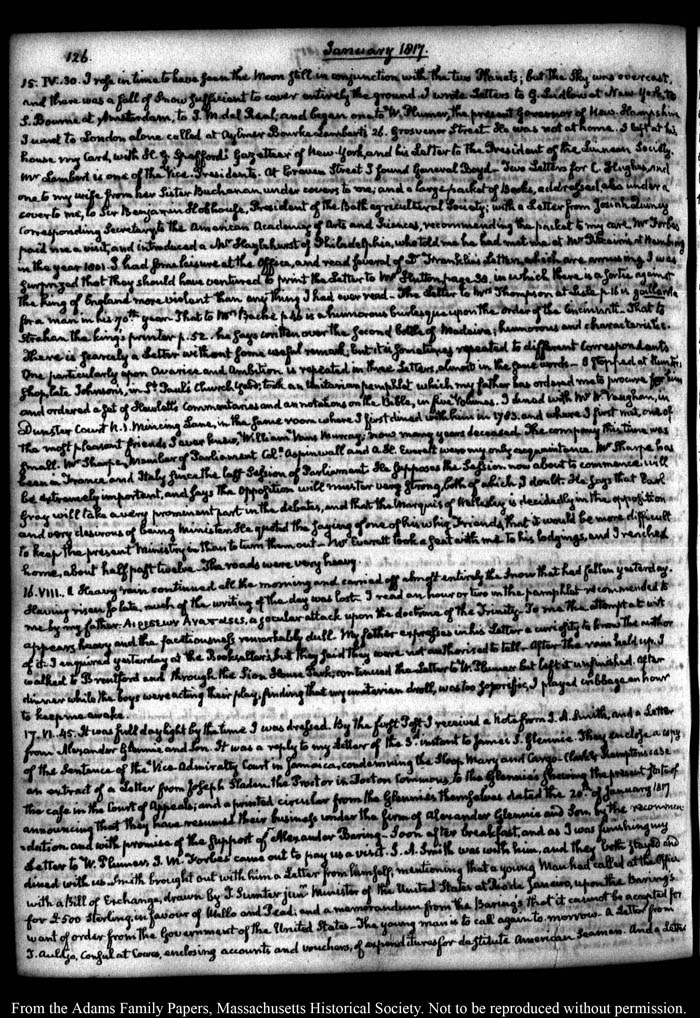 126. January 1817.
15. IV:30. I rose in time to have seen the Moon still in conjunction with the two Planets; but the Sky was overcast,
and there was a fall of Snow sufficient to cover entirely the ground. I wrote Letters to G. Ludlow at New York, to
S. Bourne at Amsterdam, to I. M. del Real; and began one to W. Plumer, the present Governor of New-Hampshire
I went to London alone called at Aylmer Bourke Lambert's 26. Grosvenor Street. He was not at home. I left at his
house my Card, with H. G. Spafford's Gazetteer of New York, and his Letter to the President of the Linnean Society.
Mr Lambert is one of the Vice-Presidents. At Craven Street I found General Boyd— Two Letters for C. Hughes, and
one to my wife from her Sister Buchanan, under covers to me; and a large packet of Books, addressed also under a
cover to me, to Sir Benjamin Hobhouse, President of the Bath agricultural Society; with a Letter from Josiah Quincy
Corresponding Secretary to the American Academy of Arts and Sciences, recommending the packet to my care. Mr Forbes
paid me a visit, and introduced a Mr of Philadelphia, who told me he had met me at Mr Pitcairn's at Hamburg
in the year 1801. I had some leisure at the Office, and read several of Dr Franklin's Letters, which are amusing. I was
surprized that they should have ventured to print the Letter to Mr Hutton page 30. in which there is a sortie against
the King of England more violent than any thing I had ever read— The Letter to Mrs Thompson at Lisle p. 16 is gaillarde
for a man in his 70th year. That to Mrs Bache p. 46 is a humorous burlesque upon the order of the Cincinnati. That to
Strahan the king's printer p. 52. he says written over the second bottle of Madeira; humorous and characteristic.
There is scarcely a Letter without some useful remark; but it is sometimes repeated to different Correspondents
One particularly upon Avarice and Ambition is repeated in three Letters, almost in the same words— I stopped at Hunter's
Shop, late Johnson's, in St. Paul's Church Yard; took an Unitarian pamphlet which my father has ordered me to procure for him
and ordered a set of Hewlett's Commentaries and annotations on the Bible, in five Volumes. I dined with Mr W. Vaughan, in
Dunster Court N. 1. Mincing Lane, in the same room where I first dined with him in 1783. and where I first met, one of
the most pleasant friends I ever knew, William Vans Murray; now many years deceased. The company this time was
small. Mr Sharpe, Member of Parliament Coll. Aspinwall and A. H. Everett were my only acquaintance. Mr Sharpe has
been in France and Italy since the last Session of Parliament. He supposes the Session now about to commence will
be extremely important, and says the Opposition will muster very strong, both of which I doubt. He says that Earl
Gray will take a very prominent part in the debates, and that the Marquis of Wellesley is decidedly in the opposition
and very desirous of being Minister. He quoted the saying of one of his whig Friends, that it would be more difficult
to keep the present Ministry in than to turn them out— Mr Everett took a seat with me to his lodgings, and I reached
home, about half past twelve. The roads were very heavy.
16. VIII. A Heavy rain continued all the morning and carried off almost entirely the Snow that had fallen yesterday.
Having risen so late, much of the writing of the day was lost. I read an hour or two in the pamphlet recommended to
me by my father. a jocular attack upon the doctrine of the Trinity. To me the attempt at wit
appears heavy and the facetiousness remarkably dull. My father expresses in his Letter a curiosity to know the author
of it. I enquired yesterday at the Bookseller's but they said they were not authorised to tell. After the rain held up, I
walked to Brentford and through the Sion House Park; continued the Letter to W. Plumer but left it unfinished. After
dinner while the boys were acting their play, finding that my unitarian droll, was too soporific, I played cribbage an hour
to keep me awake.
17. VI:45. It was full daylight by the time I was dressed. By the first Post I received a Note from J. A. Smith, and a Letter
from Alexander Glennie and Son. It was a reply to my Letter of the 3d. instant to James S. Glennie. They enclose a copy
of the Sentence of the Vice-Admiralty Court in Jamaica, condemning the Sloop Mary and Cargo— Clark & case
an extract of a Letter from Joseph Sladen the Proctor in Doctors Commons, to the Glennie's shewing the present state of
the case in the Court of Appeals; and a printed circular from the Glennies themselves dated the of January 1817
announcing that they have resumed their business under the firm of Alexander Glennie and Son, by the recommen-
-dation and with promise of the support of Alexander Baring— Soon after breakfast, and as I was finishing my
Letter to W. Plumer, I. M. Forbes came out to pay us a visit. J. A. Smith was with him, and they both stayed and
dined with us. Smith brought out with him a Letter from himself, mentioning that a young Man had called at the Office
with a Bill of Exchange, drawn by T. Sumter junr. Minister of the United States at Rio de Janeiro, upon the Barings
for £500 Sterling, in favour of and; and a memorandum from the Barings that it cannot be accepted for
want of order from the Government of the United States. The young man is to call again to morrow. A Letter from
T. Auldjo, Consul at Cowes, enclosing accounts and vouchers, of expenditures for destitute American Seamen. And a Letter
From the Adams Family Papers, Massachusetts Historical Society. Not to be reproduced without permission.